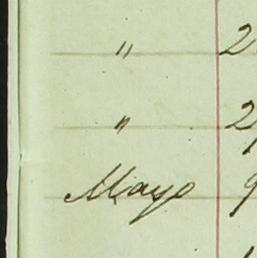 " 2
" 2
Mayo 9